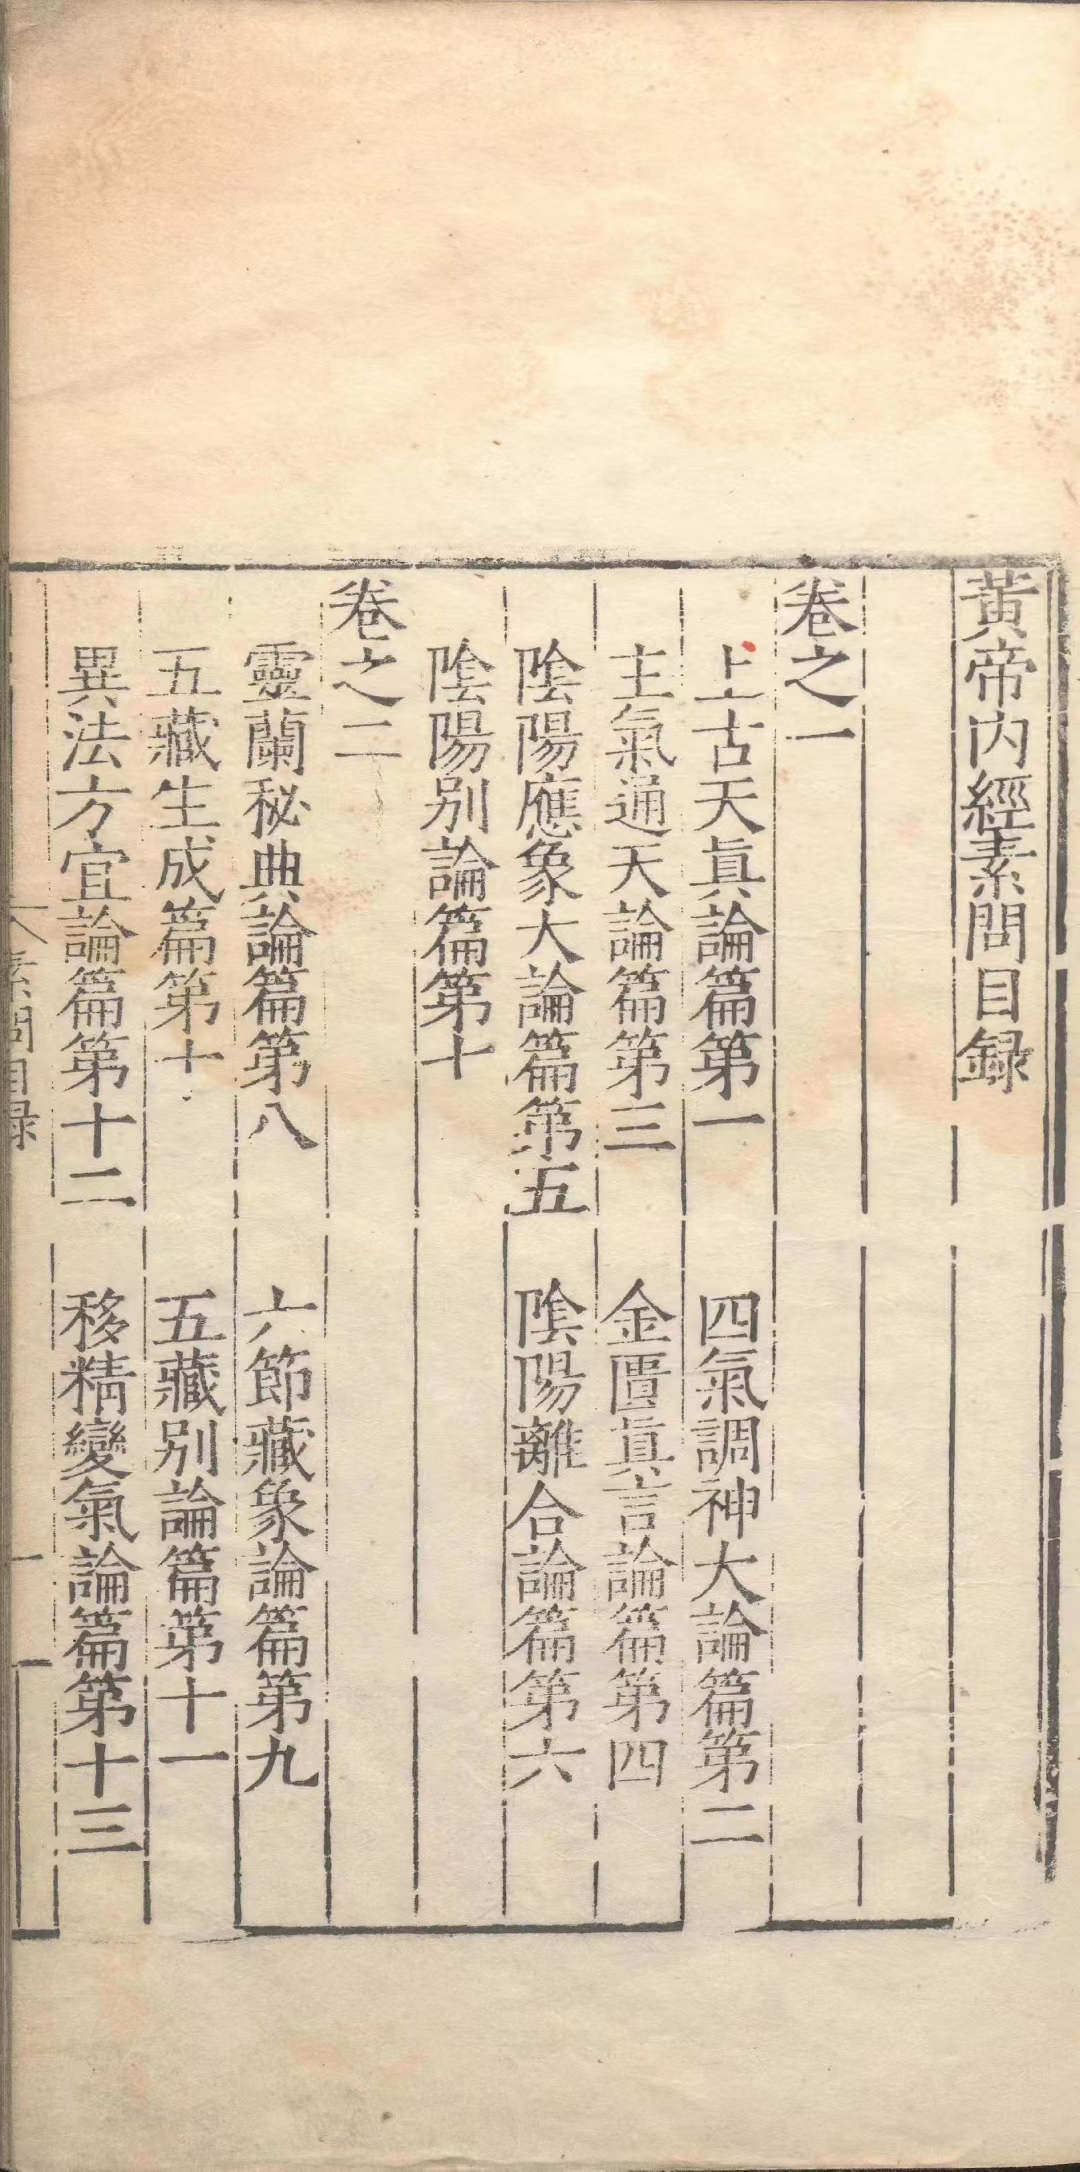 黃帝内經素問目録
卷之一
上古天眞論篇第一　四氣調神大論篇第二
主氣通天論篇第三　金匱眞言論篇第四
陰陽應象大論篇第五　陰陽離合論篇第六
陰陽别論篇第十
卷之二
靈蘭秘典論篇第八　六節藏象論篇第九
五藏生成篇第十　五藏别論篇第十一
異法方宜論篇第十二　移精變氣論篇第十三
素問目録